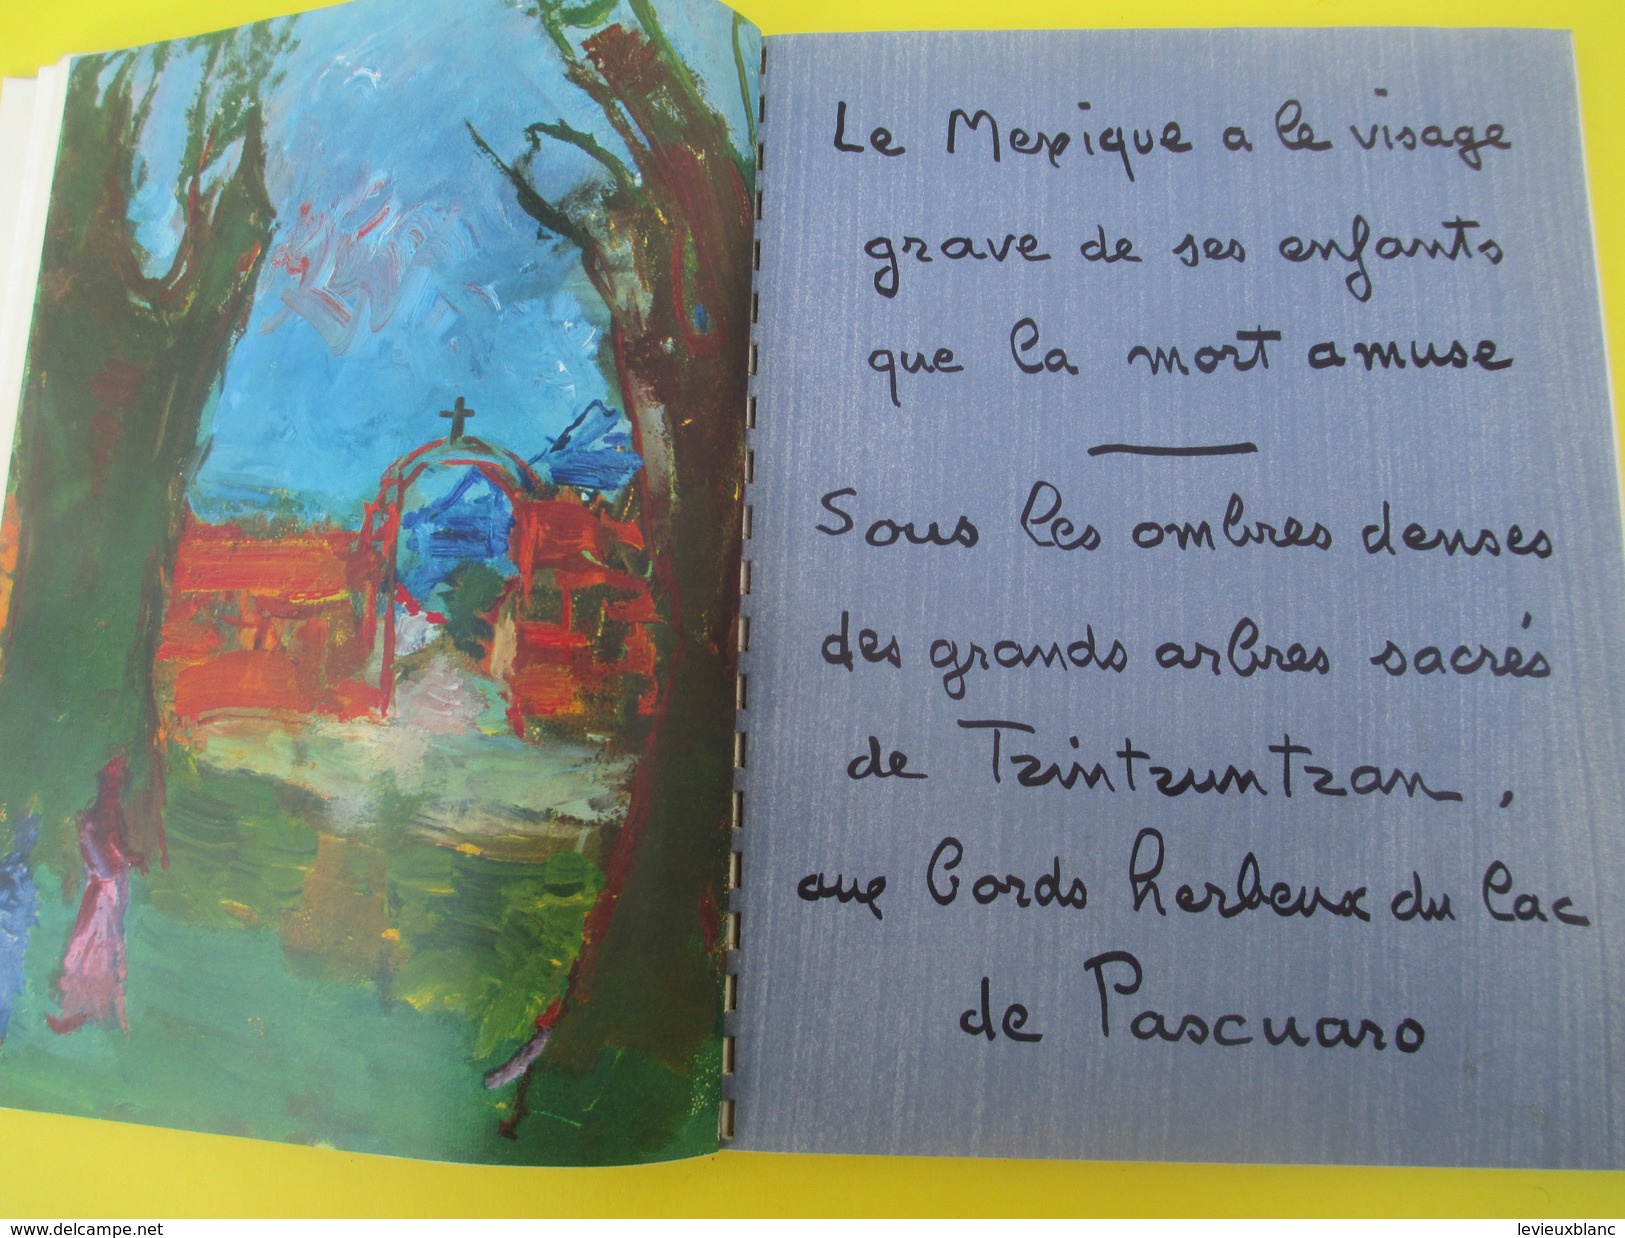 Le Mexique a le visage
grave de ses enfants
que la mort amuse
Sous les ombres denses
des grands arbres sacrés
de Tzintzuntzan,
aux bords herbeux du lac
de Pascuaro
www.delcampe.net
levieuxblanc